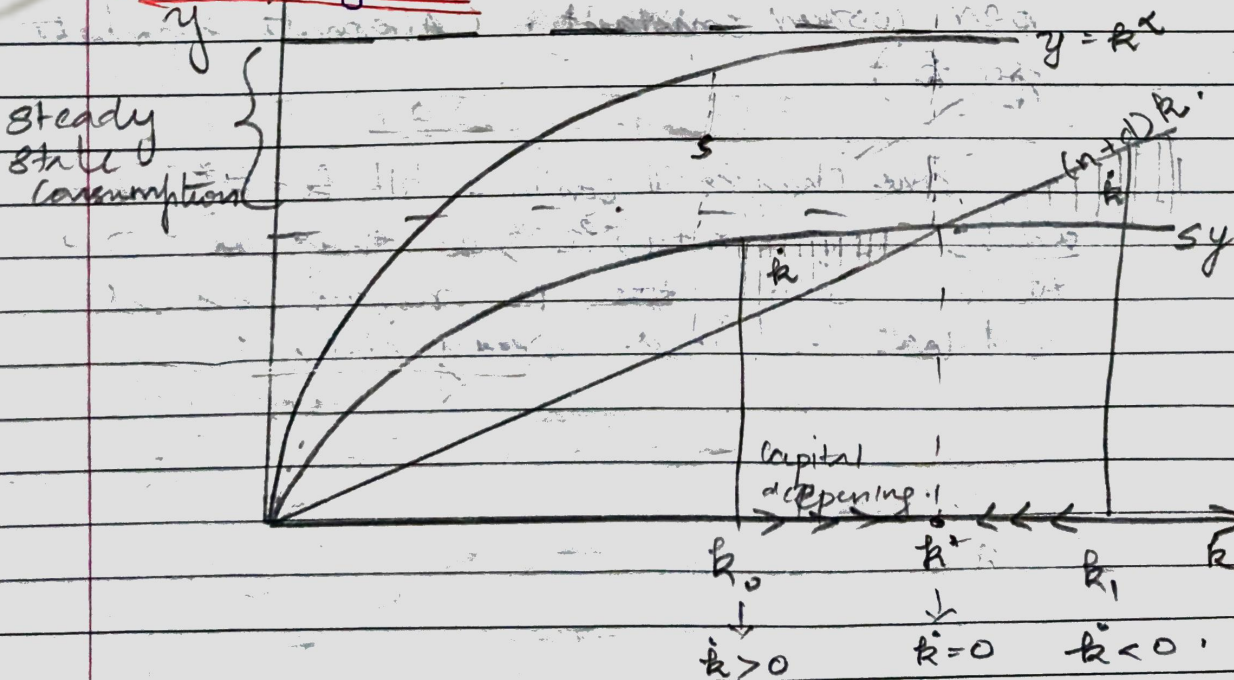 y
y = k^α
steady
state
consumption
s
(n+d)k.
k̇
sy
k̇
capital
deepening.
k₀
k*
k₁
k
k̇>0
k̇=0
k̇<0.